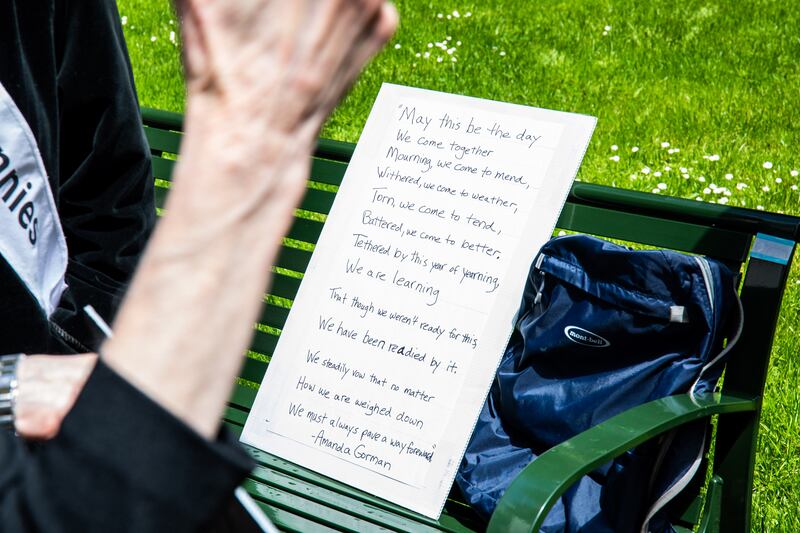 "May this be the day
We come together
Mourning, we come to mend,
Withered, we come to weather,
Torn, we come to tend,
Battered, we come to better.
Tethered by this year of yearning,
We are learning
That though we weren't ready for this,
We have been readied by it.
We steadily vow that no matter
How we are weighed down
We must always pave a way forward."
-Amanda Gorman
nnies
mont-bell